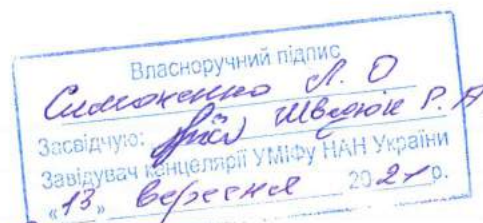 Власноручний підпис
Симоненко Л. О
Засвідчую: Шведюк Р. А
Завідувач канцелярії УМІФу НАН України
«13» вересня 2021р.